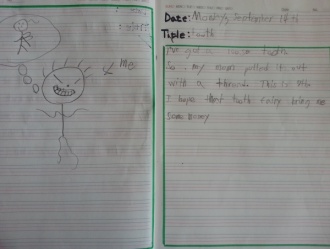 Me
Date: Monday, September 14th
Tiple: tooth
I've got a loose tooth.
So my mum pulled it out
with a thread. This is Me
I hope that tooth fairy bring me
some money